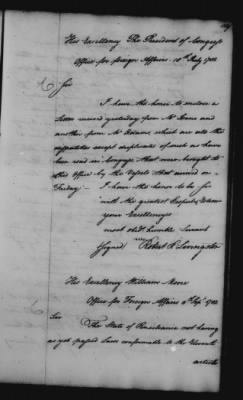 His Excellency The President of Congress
Office for foreign Affairs. 18th July 1782
Sir
I have the honor to enclose a
Letter received yesterday from Mr Dana and
another from Mr Adams, which are all the
except duplicates of such as have
been read in Congress that were brought to
this Office by the Vessels that arrived on
Friday — I have the honor to be Sir
with the greatest Respect & Esteem
your Excellencys
most obt humble Servant
Signed Robert R Livingston
His Excellency William Moore
Office for Foreign Affairs Sept 1782
Sir
The State of Pensilvania not having
as yet passed Laws conformable to the Eleventh
article